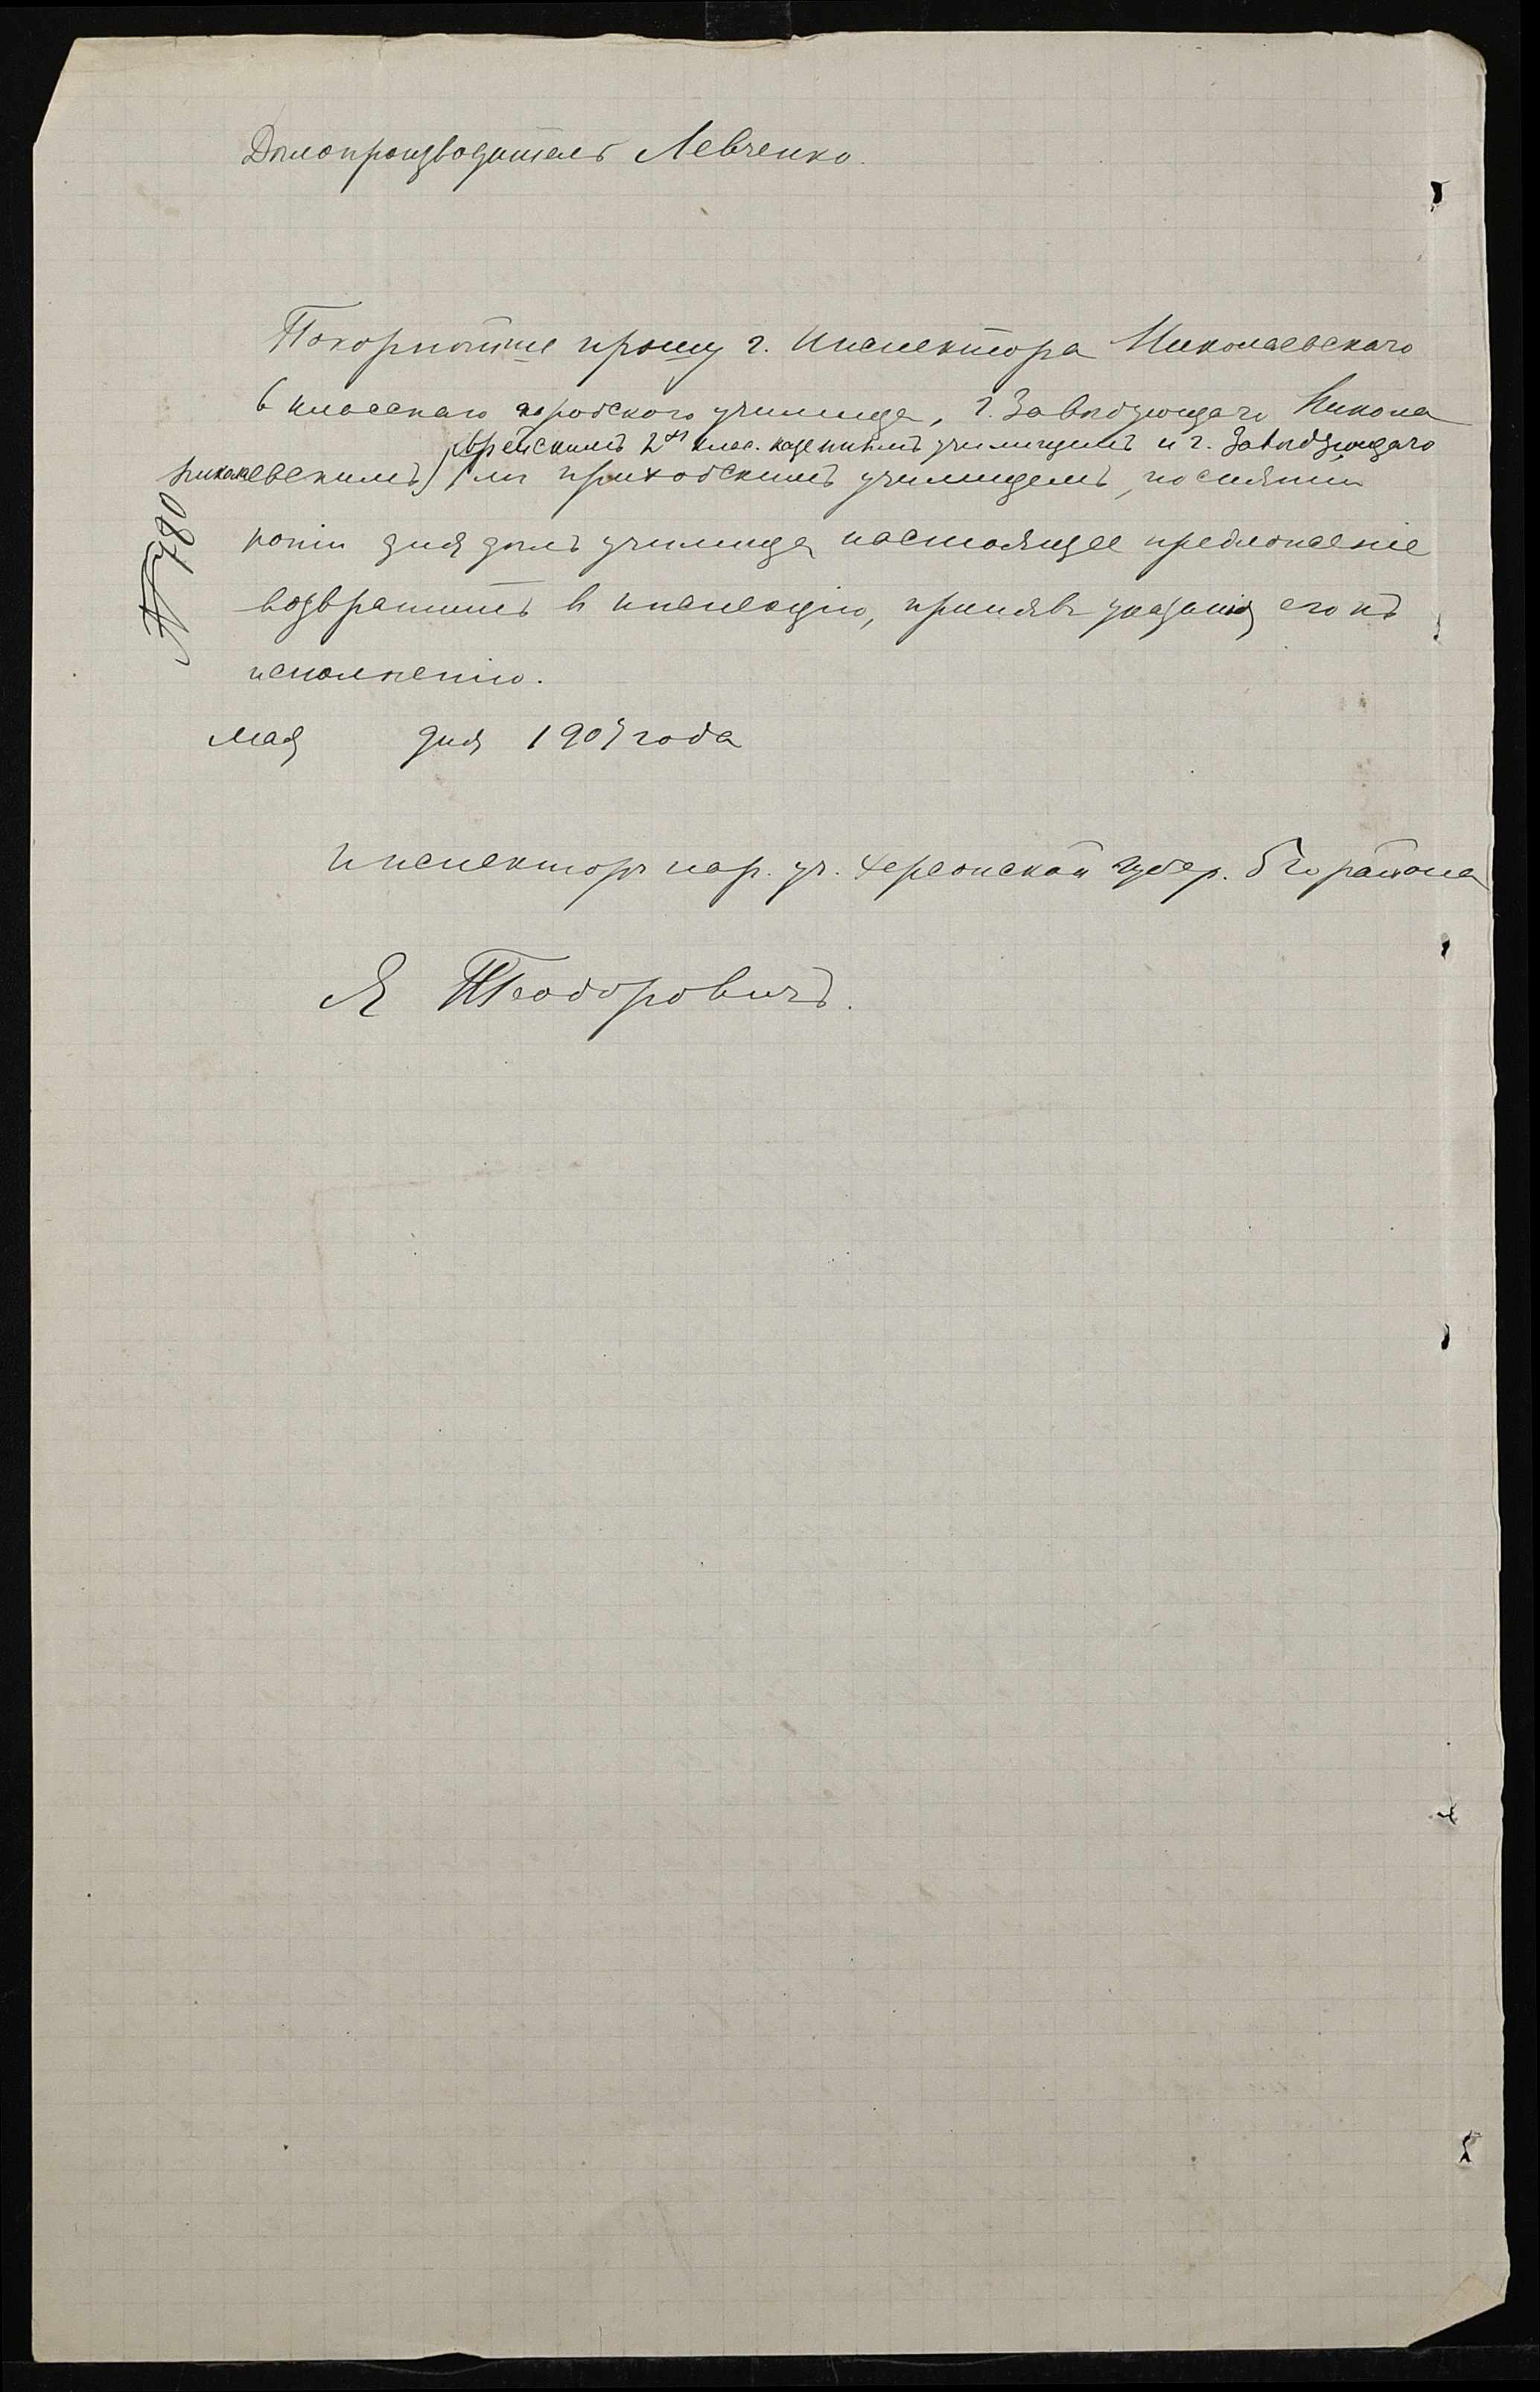 Дѣлопроизводитель Левченко.
Покорнѣйше прошу г. Инспектора Николаевскаго
6 класснаго городского училища, г. Завѣдующаго Никола
еврейскимъ 2хъ клас. казеннымъ училищемъ и г. Завѣдующаго
Николаевскимъ) приходскимъ училищемъ, по снятии
копіи для дѣлъ училища настоящее предложеніе
возвратить в инспекцію, принявъ указанія его къ
исполненію.
№ 780
мая дня 190 года
Инспекторъ нар. уч. Херсонской губер. 5 го района
Я Теодоровичъ.